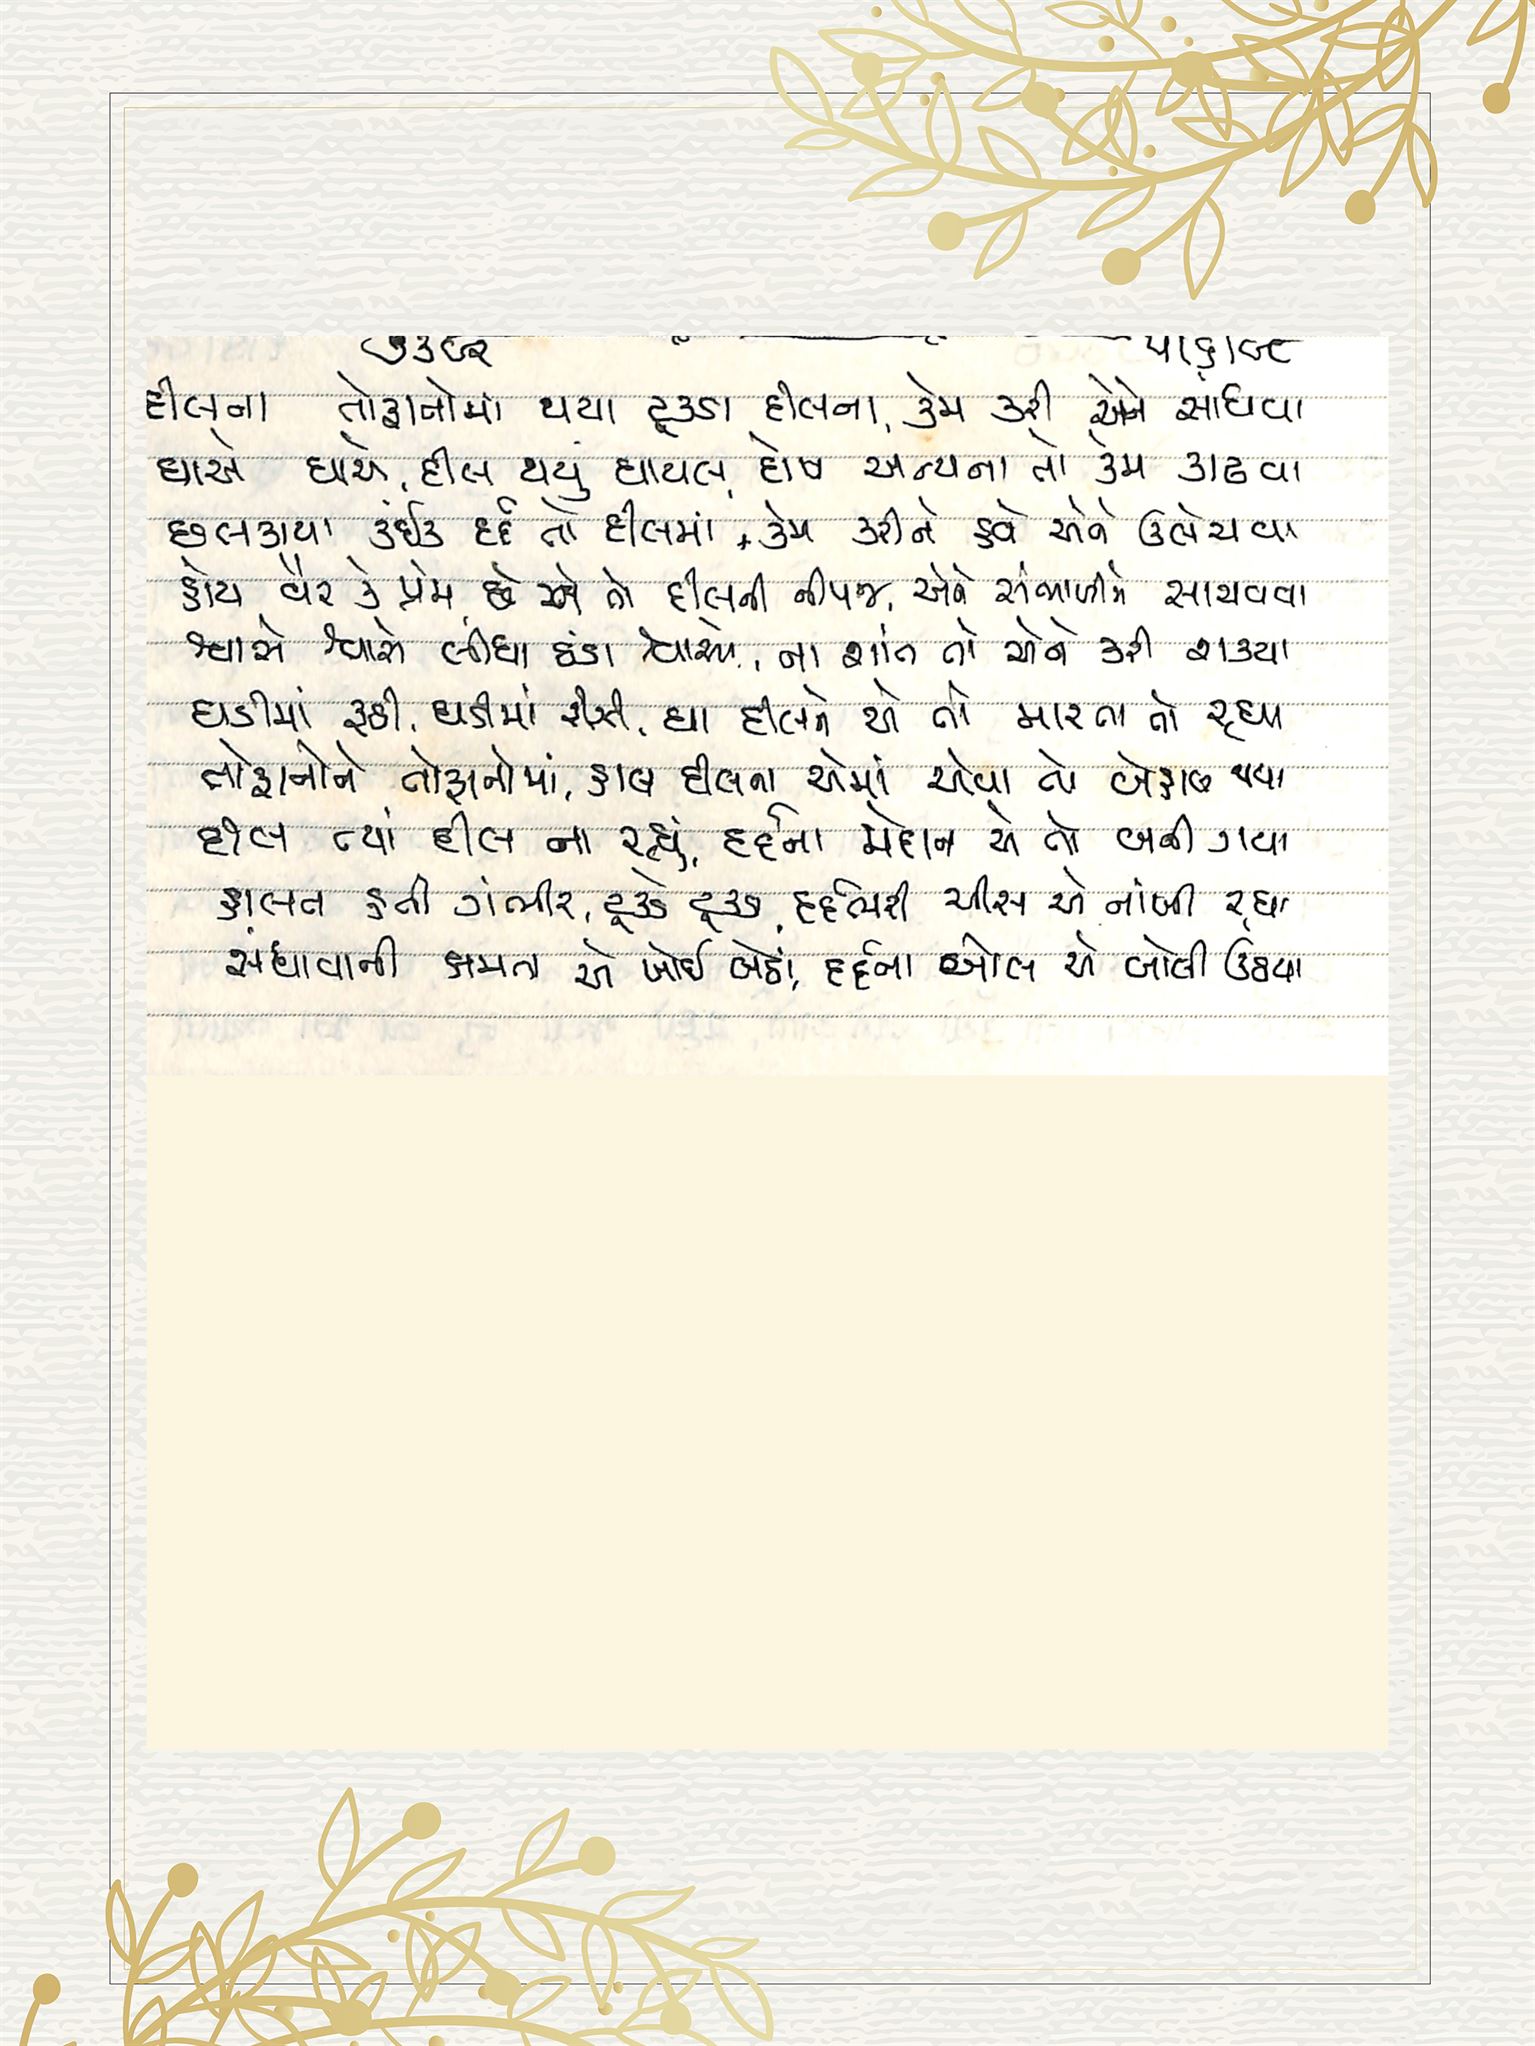 દીલના તોફાનોમાં થયા ટૂકડા દીલના, કેમ કરી એને સાંધવા
ઘાએ ઘાએ, દીલ થયું ઘાયલ, દોષ અન્યના તો કેમ કાઢવા
છલકાયા કંઈક દર્દ તો દીલમાં, કેમ કરીને હવે એને ઉલેચવા
હોય વૈર કે પ્રેમ, છે એ તો દીલની નીપજ, એને સંભાળીને સાચવવા
શ્વાસે શ્વાસે લીધા ઠંડા શ્વાસો, ના શાંત તો એને કરી શક્યા
ઘડીમાં રૂઠી, ઘડીમાં રીસી, ઘા દીલને એ તો મારતા તો રહ્યા
તોફાનોને તોફાનોમાં, હાલ દીલના એમાં એવા તો બેહાલ થયા
દીલ ત્યાં દીલ ના રહ્યું, દર્દના મેદાન એ તો બની ગયા
હાલત હતી ગંભીર, ટૂકડે ટૂકડા, દર્દભરી ચીસ એ નાંખી રહ્યા
સંધાવાની ક્ષમતા એ ખોઈ બેઠાં, દર્દના બોલ એ બોલી ઉઠયા